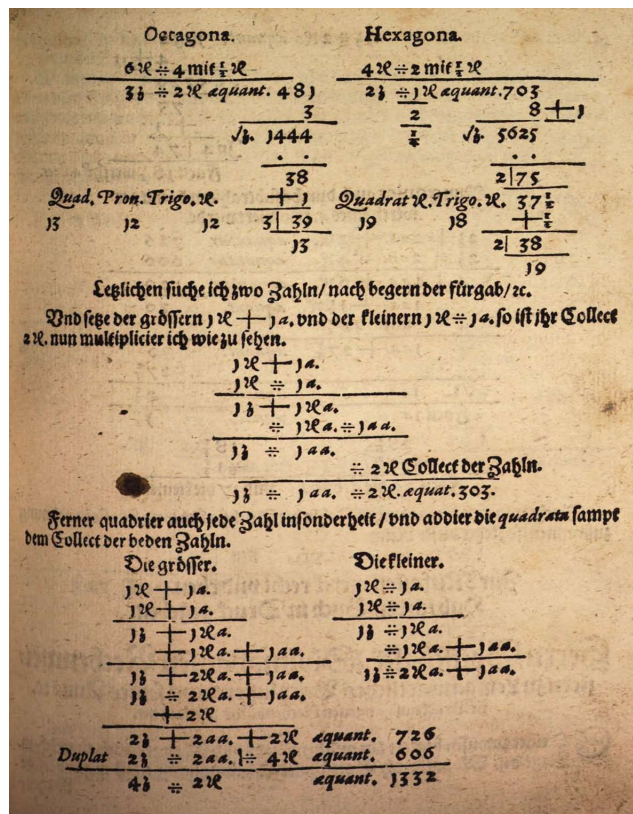 Octagona.
6 ꝛe ÷ 4 mit ½ ꝛe
3 ʒ ÷ 2 ꝛe æquant. 481
3
√ʒ. 1444
38
Quad. Pron. Trigo. ꝛe. + 1
13 12 12 3| 39
13
Hexagona.
4 ꝛe ÷ 2 mit ½ ꝛe
2 ʒ ÷ 1 ꝛe æquant. 703
2 8 + 1
½ √ʒ. 5625
2|75
Quadrat ꝛe. Trigo. ꝛe. 37 ½
19 18 + ½
2| 38
19
Letzlichen suche ich zwo Zahln/ nach begern der fürgab/ ꝛc.
Vnd setze der grössern 1 ꝛe + 1 a. vnd der kleinern 1 ꝛe ÷ 1 a. so ist jhr Collect
2 ꝛe. nun multiplicier ich wie zu sehen.
1 ꝛe + 1 a.
1 ꝛe ÷ 1 a.
1 ʒ + 1 ꝛe a.
÷ 1 ꝛe a. ÷ 1 aa.
1 ʒ ÷ 1 aa.
÷ 2 ꝛe Collect der Zahln.
1 ʒ ÷ 1 aa. ÷ 2 ꝛe. æquat. 303.
Ferner quadrier auch jede Zahl insonderheit / vnd addier die quadrata sampt
dem Collect der beden Zahln.
Die grösser.
1 ꝛe + 1 a.
1 ꝛe + 1 a.
1 ʒ + 1 ꝛe a.
+ 1 ꝛe a. + 1 aa.
1 ʒ + 2 ꝛe a. + 1 aa.
1 ʒ ÷ 2 ꝛe a. + 1 aa.
+ 2 ꝛe
Die kleiner.
1 ꝛe ÷ 1 a.
1 ꝛe ÷ 1 a.
1 ʒ ÷ 1 ꝛe a.
÷ 1 ꝛe a. + 1 aa.
1 ʒ ÷ 2 ꝛe a. + 1 aa.
2 ʒ + 2 aa. + 2 ꝛe æquant. 726
Duplat 2 ʒ ÷ 2 aa. ÷ 4 ꝛe æquant. 606
4 ʒ ÷ 2 ꝛe æquant. 1332